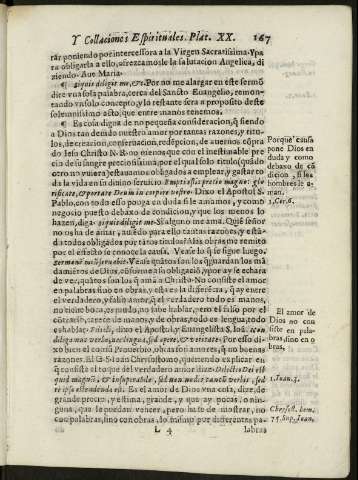 Y Collaciones Espirituales. Plat. XX. 167
rar poniendo por intercessora a la Virgen Sacratissima. Y pa
ra obligarla a ello, ofrezcamosle la salutacion Angelica, di
ziendo Aue Maria.
¶ Siquis diligit me, &c. Por no me alargar en este sermõ
diré vna sola palabra, cerca del Sancto Euangelio, remon-
tando vn solo concepto, y lo restante sera a proposito deste
solemnissimo acto, que entre manos tenemos.
¶ Es cosa digna de no pequeña consideraciõ, q̃ siendo
a Dios tan deuido nuestro amor por tantas razones, y titu-
los, de creacion, conseruacion, redẽpcion, de auernos cõpra
do Iesu Christo N. R. no menos que con el inestimable pre
cio de su sangre preciosissima, por el qual solo titulo (quãdo
no vuiera otro) quedauamos obligados a emplear, y gastar to
da la vida en su diuino seruicio Empti estis precio magno: glo
rificate, & portate Deum in corpore vestro. Dixo el Apostol S.
Pablo, con todo esso ponga en duda si le amamos, y como
negocio puesto debaxo de condicion, y que los menos lo
hazen, diga siquis diligit me. Si alguno me ama. Que señor
no os ha de amar, auiendo para ello tantas razones, y está-
do todos obligados por tãtos titulos? A las obras me remito
por el effecto se conoce la causa. Vease lo que se sigue luego.
sermonẽ meũ seruabit. Veãse quãtos son los q̃ guardan los mã
damiẽtos de Dios, cõforme a su obligaciõ, y por ay se echara
de ver, quãtos son los q̃ aman a Christo. No consiste el amor
en palabras sino en obras, y esta es la differẽcia, que ay entre
el verdadero, y falso amor, q̃ el verdadero todo es manos,
no tiene boca, es mudo, no sabe hablar, y en el falso por el
cõtrario, carece de manos, y de obras, todo es lengua, todo
es hablar. Filioli, dixo el Apostol, y Euangelista S. Ioã. non
diligamus verbo, nec lingua, sed opere, & veritate. Por esso di-
xo bien el comũ Prouerbio, obras son amores, q̃ no buenas
razones. El G. S. Ioan Chrisostomo, queriendo explicar en
q̃ consiste el toque del verdadero amor dixo: Dilectio Dei est
quid magnũ, & insuperabile, sed non mediz tantũ verbis, sed
& ipso ostendenda est. Es el amor de Dios vna cosa, dize, de
grande precio, y estima, grande, y que ay pocas, o nin-
guna, que le puedan vencer, pero hase de mostrar, no
con palabras, sino con obras, lo mismo por differentes pa
L 4 labras
Porque causa
pone Dios en
duda y como
debaxo de cõ
diciõn, si los
hombres le a-
man.
1. Cor. 6.
El amor de
Dios no con
siste en pala-
bras, sino en o
bras.
1. Ioan. 3.
Chrysost. hom.
75. sup. Ioan.